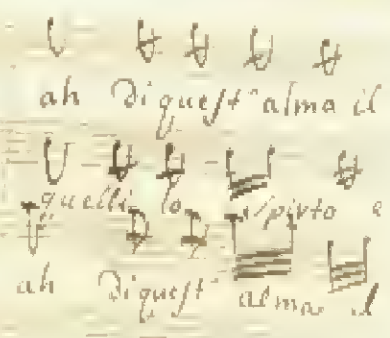 ah di quest'alma il
quelli lo spirto e
ah di quest' alma il